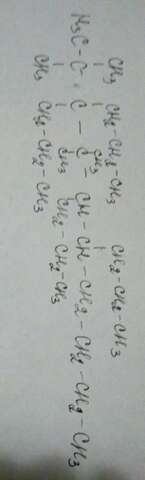 CH3 CH2-CH2-CH3 CH2-CH2-CH3
CH3
H3C-C-C-C-CH-CH-CH2-CH2-CH2-CH3
CH3 CH2-CH2-CH3
CH3 CH2-CH2-CH3